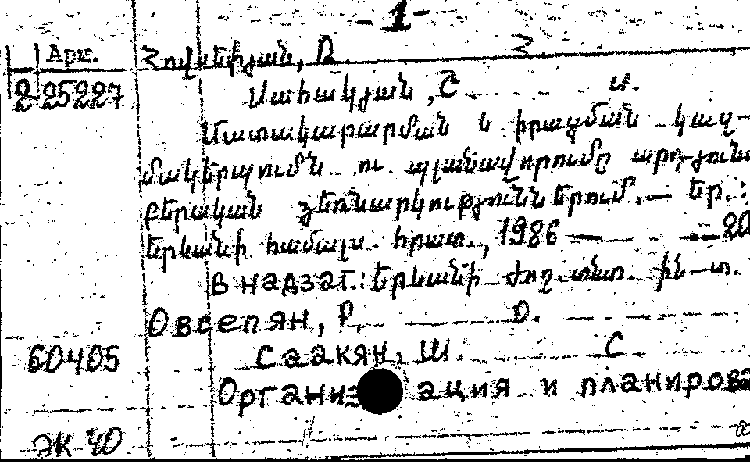 -1-
Арм. Հովսեփյան, Ռ. Հ
2-25227 Սահակյան, Շ. Ս.
Մատակարարման և իրացման կազ-
մակերպումն ու պլանավորումը արդյունա
բերական ձեռնարկություններում. — Եր.:
Երևանի համալս. հրատ., 1986 — 20
В надзаг.: Երևանի ժող. տնտ. ին-տ.
Овсепян, Р. О.
60405 Саакян, Ш. С
Организация и планирова
ЖК 40